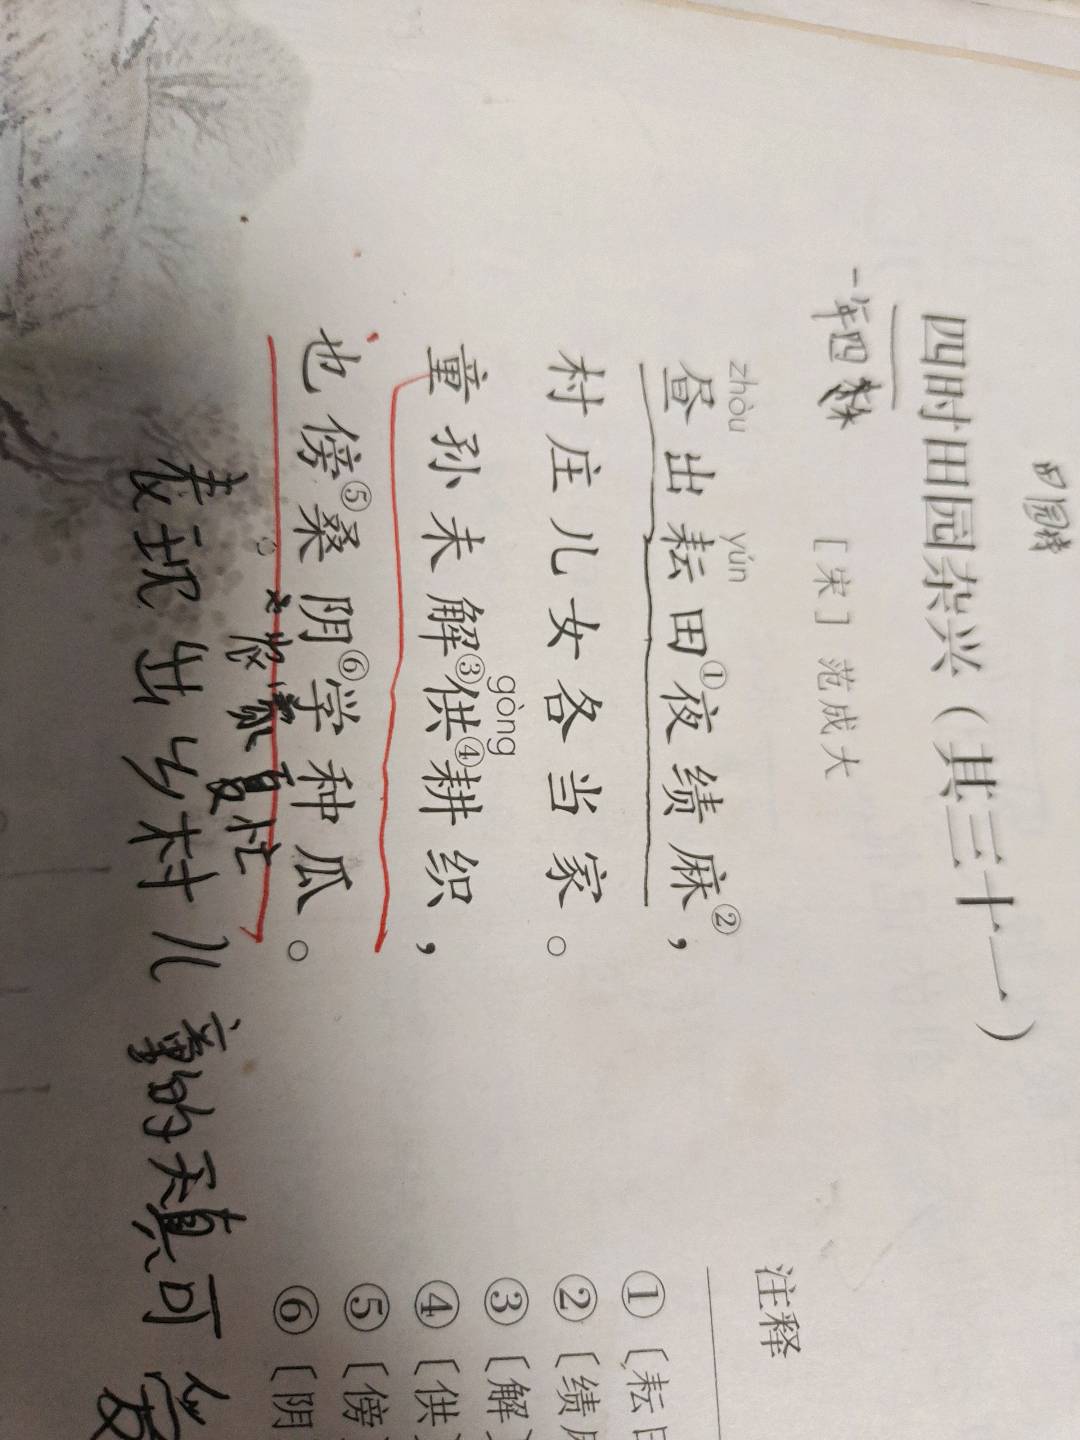 田园诗
四时田园杂兴（其三十一）
一年四季
［宋］范成大
zhòu yún
昼出耘田①夜绩麻②，
村庄儿女各当家。
gòng
童孙未解③供④耕织，
也傍⑤桑阴⑥学种瓜。
农家夏忙
表现出乡村儿童的天真可爱
注释
①〔耘田
②〔绩麻
③〔解〕
④〔供〕
⑤〔傍〕
⑥〔阴